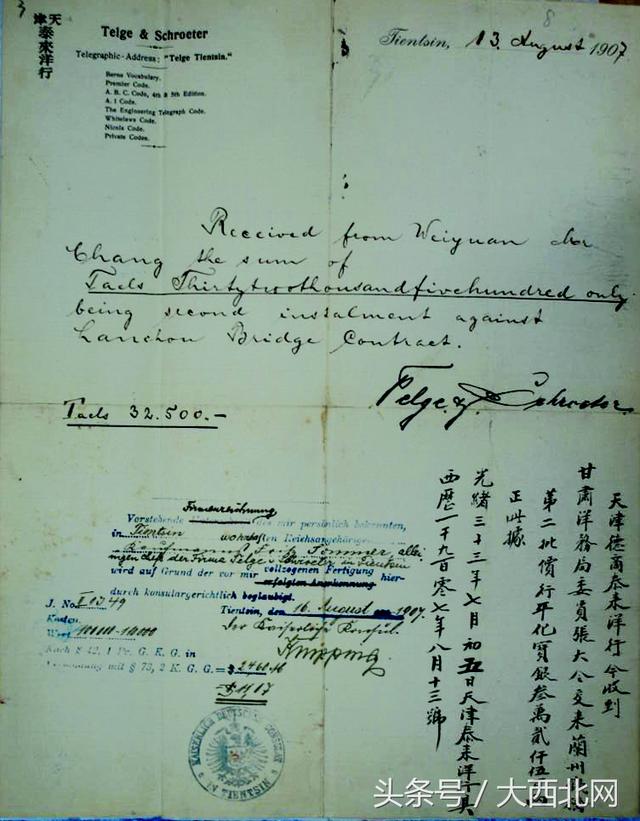 天津
泰來洋行
Telge & Schroeter
Telegraphic-Address: "Telge Tientsin."
Berne Vocabulary.
Premier Code.
A. B. C. Code, 4th & 5th Edition.
A. I Code.
The Engineering Telegraph Code.
Whitelaws Code.
Nicols Code.
Private Codes.
Tientsin, 13. August 1907.
Received from Weiyuan
Chang the sum of
Taels Thirtytwothousandfivehundred only
being second instalment against
Lanchou Bridge Contract.
Telge & Schroeter
Taels 32.500.-
天津德商泰来洋行今收到
甘肅洋務局委員張大令交来蘭州
第二批價行平化寶銀叁萬貳仟伍
正此據
光緒三十三年七月初五日天津泰来洋行具
西歷一千九百零七年八月十三號
Firmenzeichnung
Vorstehende des mir persönlich bekannten,
in Tientsin wohnhaften Reichsangehörigen
Sommer allei
nigen Chef der Firma Telge & Schroeter in Tientsin
wird auf Grund der vor mir vollzogenen Fertigung hier-
durch konsulargerichtlich beglaubigt.
Tientsin, den 16. August 1907.
Der Kaiserliche Konsul.
Knipping
J. No.
Kosten
Wert
Nach § 42, 1 Pr. G. K. G. in
mit § 73, 2 K. G. G. =
KAISERLICH DEUTSCHES KONSULAT
IN TIENTSIN
头条号 / 大西北网